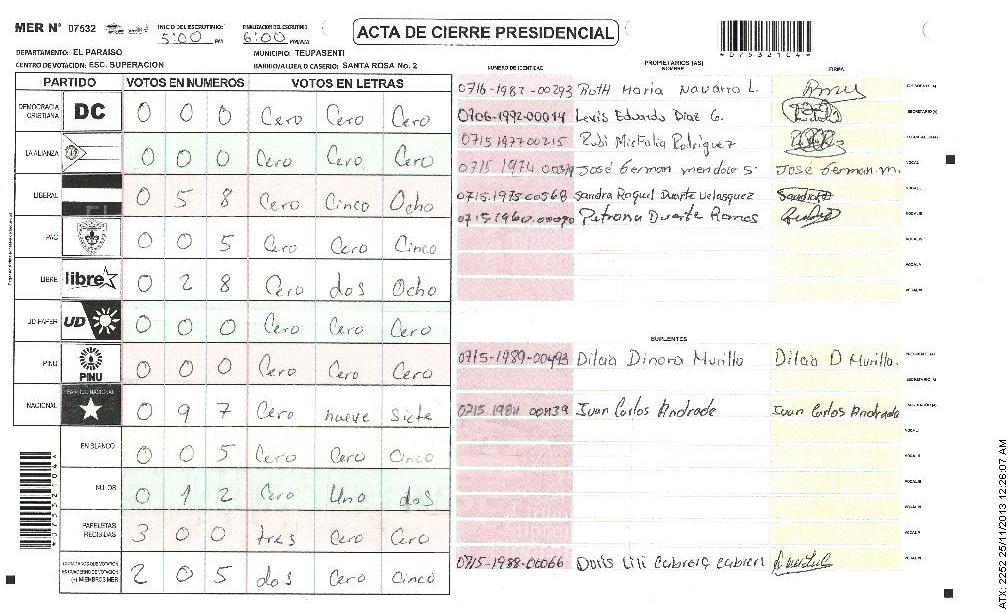 MER Nº 07532 INICIO DEL ESCRUTINIO: 5:00 PM FINALIZACION DEL ESCRUTINIO: 6:00 PM/AM
ACTA DE CIERRE PRESIDENCIAL
*07532104*
DEPARTAMENTO: EL PARAISO MUNICIPIO: TEUPASENTI
CENTRO DE VOTACION: ESC. SUPERACION BARRIO/ALDEA O CASERIO: SANTA ROSA No. 2
PARTIDO VOTOS EN NUMEROS VOTOS EN LETRAS
DEMOCRACIA CRISTIANA DC 0 0 0 Cero Cero Cero
LA ALIANZA 0 0 0 Cero Cero Cero
LIBERAL 0 5 8 Cero Cinco Ocho
PAC 0 0 5 Cero Cero Cinco
LIBRE libre 0 2 8 Cero dos Ocho
UD-FAPER UD 0 0 0 Cero Cero Cero
PINU PINU 0 0 0 Cero Cero Cero
NACIONAL PARTIDO NACIONAL 0 9 7 Cero nueve Siete
EN BLANCO 0 0 5 Cero Cero Cinco
NULOS 0 1 2 Cero Uno dos
PAPELETAS RECIBIDAS 3 0 0 tres Cero Cero
CIUDADANOS QUE VOTARON EN CUADERNO DE VOTACION (+) MIEMBROS MER 2 0 5 dos Cero Cinco
*07532104*
PROPIETARIOS (AS)
NUMERO DE IDENTIDAD NOMBRE FIRMA
0716-1987-00293 Ruth Maria Navarro L. PRESIDENTE (A)
0706-1992-00014 Lexis Eduardo Diaz G. SECRETARIO (A)
0715 1977 00215 Rubi Mistalia Rodriguez
0715 1974 José German mendoza S. José German m. VOCAL
0715-1975-00568 Sandra Raquel Duarte Velasquez
0715-1960-00090 Petrona Duarte Ramos
SUPLENTES
0715-1989-00493 Dilcia Dinora Murillo Dilcia D Murillo. PRESIDENTE (A)
SECRETARIO (A)
0715 1984 00439 Juan Carlos Andrade Juan Carlos Andrade
0715-1988-00066 Doris Lili Cabrera
ATX: 2252 25/11/2013 12:26:07 AM